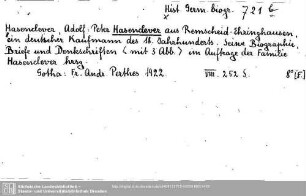 Hist. Germ. biogr. 721 b
Hasenclever, Adolf: Peter Hasenclever aus Remscheid-Ehringhausen,
ein deutscher Kaufmann des 18. Jahrhunderts. Seine Biographie,
Briefe und Denkschriften (mit 3 Abb) im Auftrage der Familie
Hasenclever hrsg
Gotha: Fr. Andr. Perthes 1922. VIII. 252 S. 8°
Sächsische Landesbibliothek -
Staats- und Universitätsbibliothek Dresden